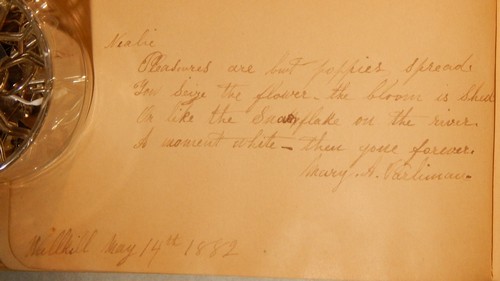 Nealie
Pleasures are but poppies spread
You Seize the flower - the bloom is Shed
Or like the Snowflake on the river
A moment white - then gone forever.
Mary. A. Parliman.
Wallkill May 14th 1882.